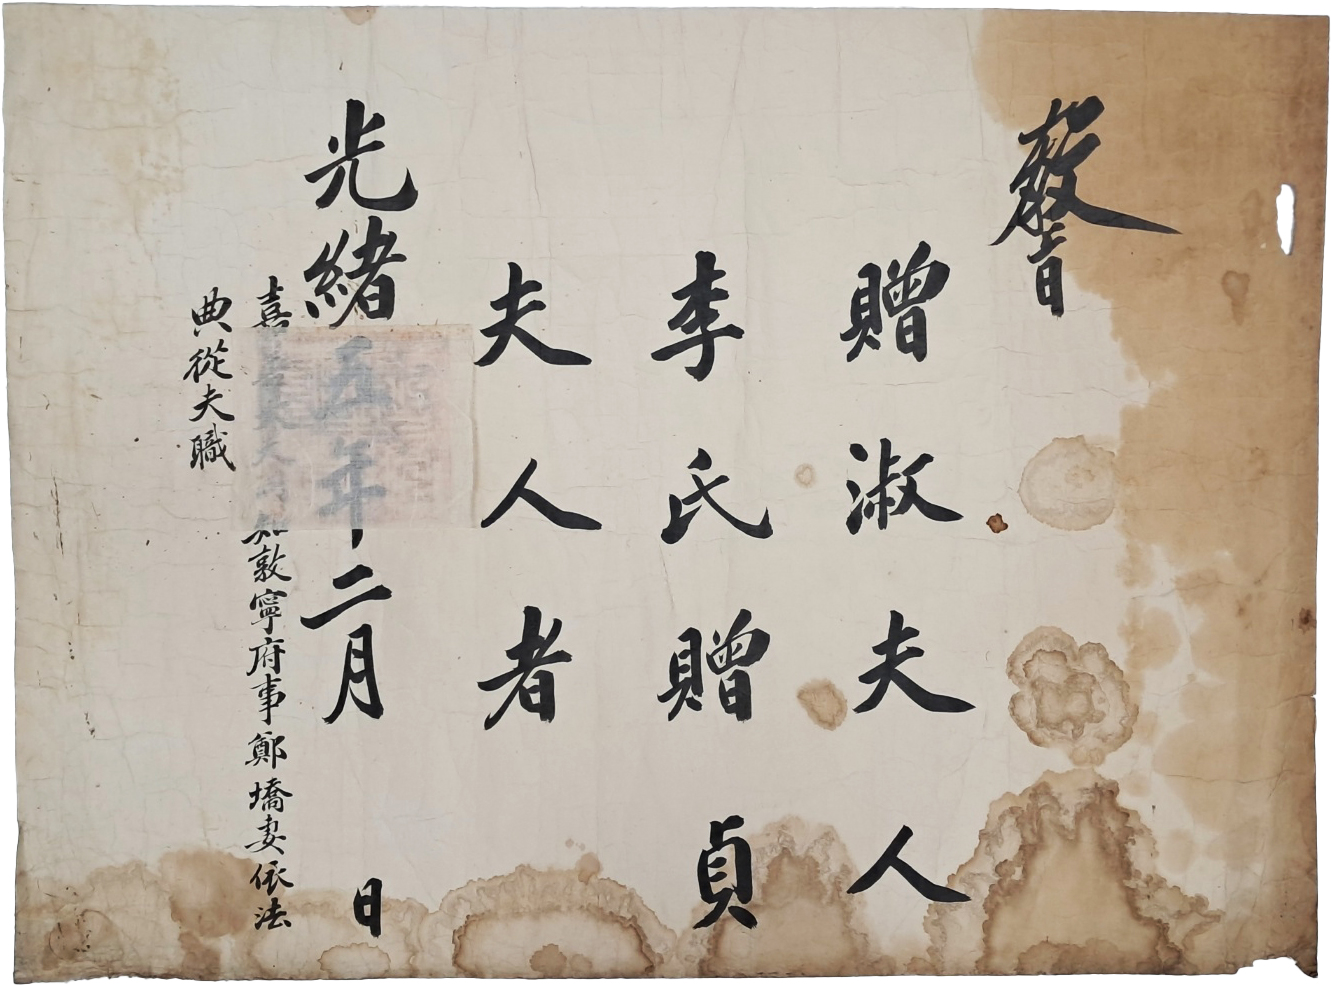 敎旨
贈淑夫人
李氏贈貞
夫人者
光緒五年二月 日
嘉善大夫同知敦寧府事鄭墧妻依法
典從夫職